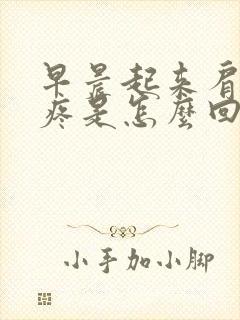 早晨起来肩
疼是怎麼回
小手加小脚